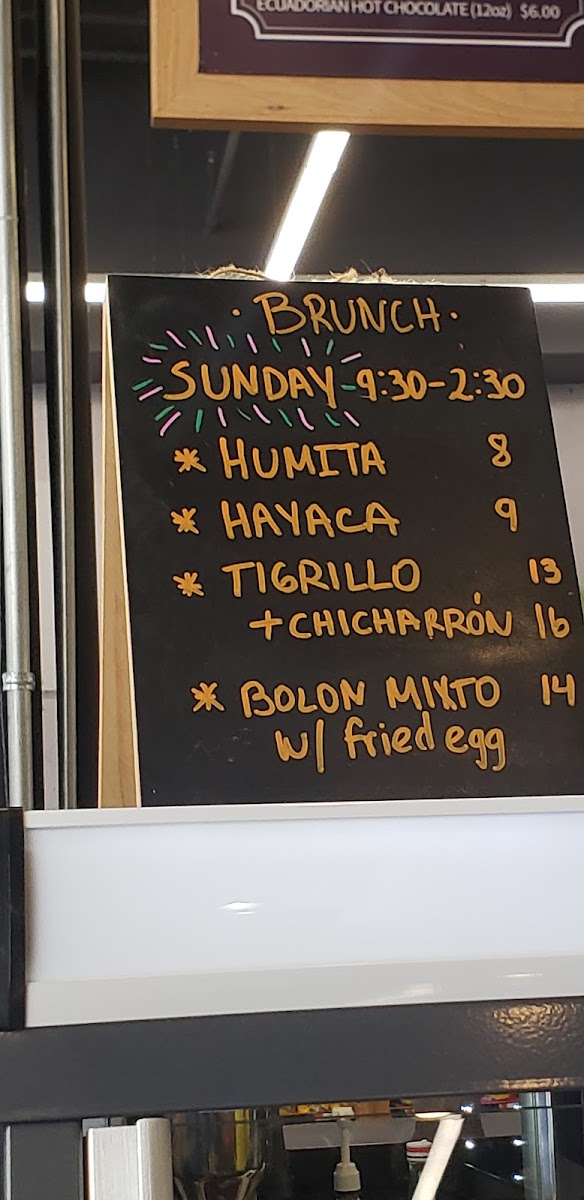 ECUADORIAN HOT CHOCOLATE (12oz) $6.00
· BRUNCH ·
SUNDAY-9:30-2:30
* HUMITA 8
* HAYACA 9
* TIGRILLO 13
+CHICHARRÓN 16
* BOLON MIXTO 14
w/ fried egg